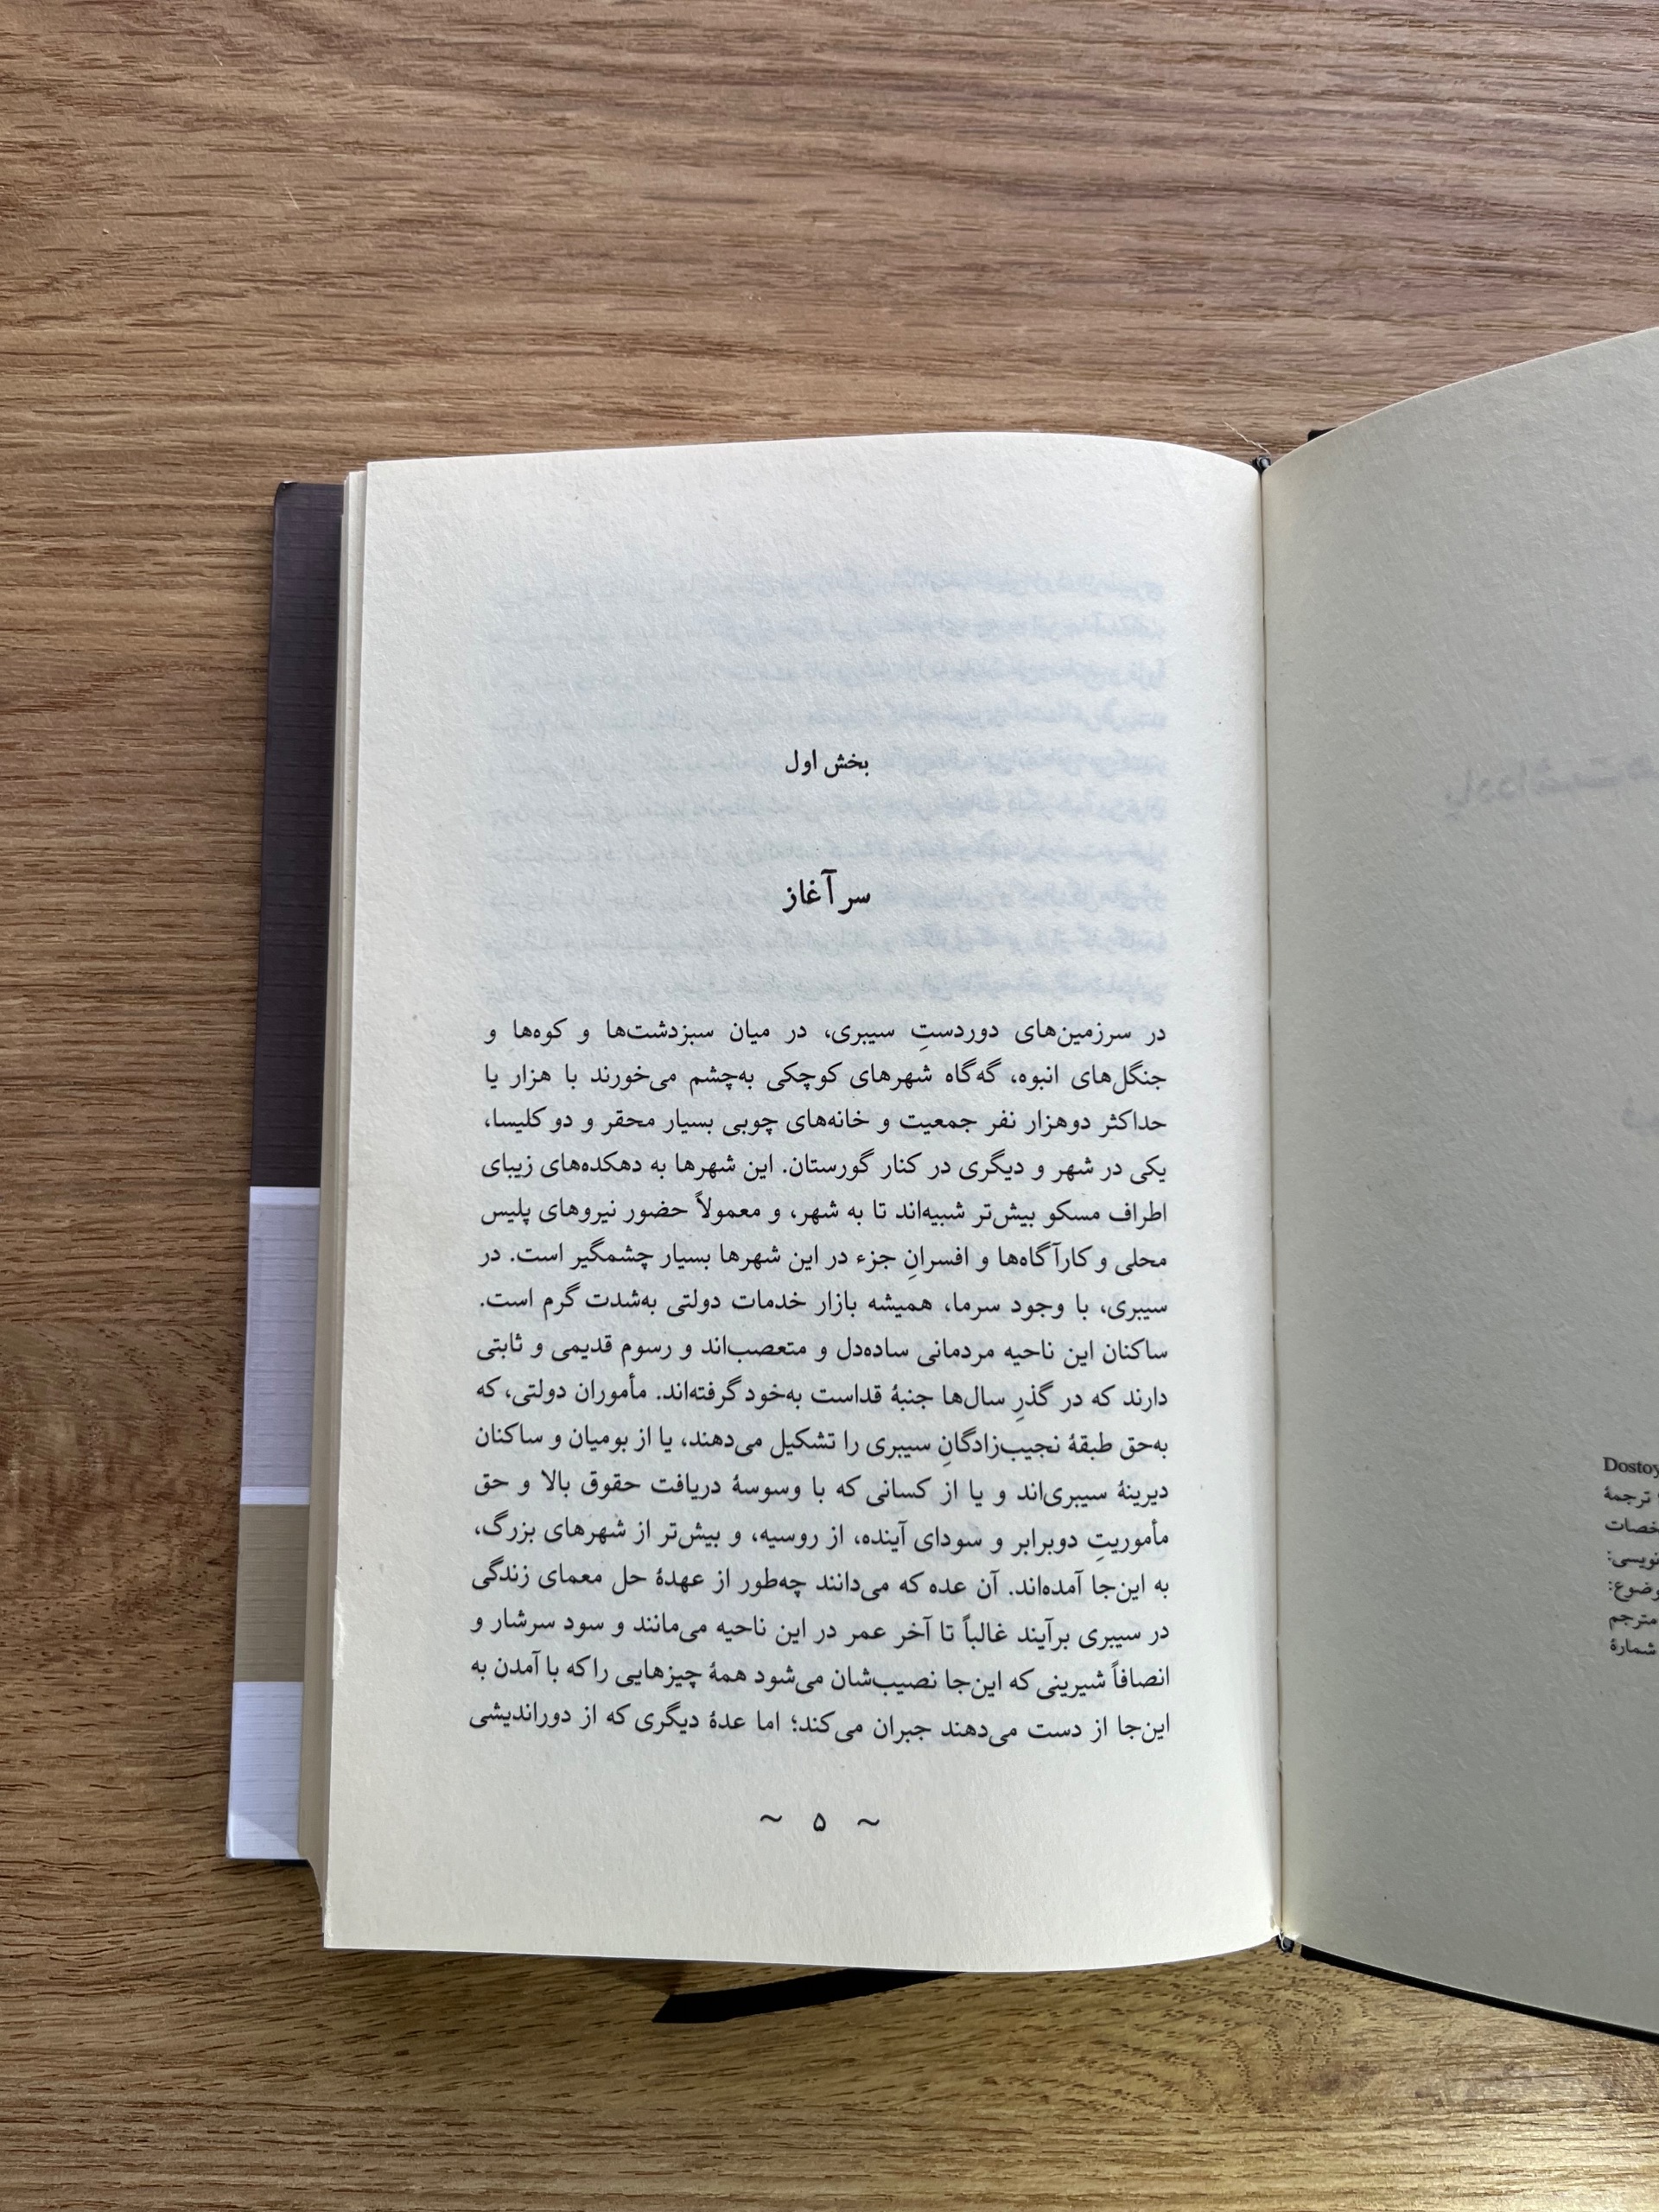 بخش اول
سرآغاز
در سرزمین‌های دوردستِ سیبری، در میان سبزدشت‌ها و کوه‌ها و
جنگل‌های انبوه، گه‌گاه شهرهای کوچکی به‌چشم می‌خورند با هزار یا
حداکثر دوهزار نفر جمعیت و خانه‌های چوبی بسیار محقر و دو کلیسا،
یکی در شهر و دیگری در کنار گورستان. این شهرها به دهکده‌های زیبای
اطراف مسکو بیش‌تر شبیه‌اند تا به شهر، و معمولاً حضور نیروهای پلیس
محلی و کارآگاه‌ها و افسرانِ جزء در این شهرها بسیار چشمگیر است. در
سیبری، با وجود سرما، همیشه بازار خدمات دولتی به‌شدت گرم است.
ساکنان این ناحیه مردمانی ساده‌دل و متعصب‌اند و رسوم قدیمی و ثابتی
دارند که در گذرِ سال‌ها جنبۀ قداست به‌خود گرفته‌اند. مأموران دولتی، که
به‌حق طبقۀ نجیب‌زادگانِ سیبری را تشکیل می‌دهند، یا از بومیان و ساکنان
دیرینۀ سیبری‌اند و یا از کسانی که با وسوسۀ دریافت حقوق بالا و حق
مأموریتِ دوبرابر و سودای آینده، از روسیه، و بیش‌تر از شهرهای بزرگ،
به این‌جا آمده‌اند. آن عده که می‌دانند چه‌طور از عهدۀ حل معمای زندگی
در سیبری برآیند غالباً تا آخر عمر در این ناحیه می‌مانند و سود سرشار و
انصافاً شیرینی که این‌جا نصیب‌شان می‌شود همۀ چیزهایی را که با آمدن به
این‌جا از دست می‌دهند جبران می‌کند؛ اما عدۀ دیگری که از دوراندیشی
~ ۵ ~
Dostoy
ترجمۀ
مترجم
شمارۀ